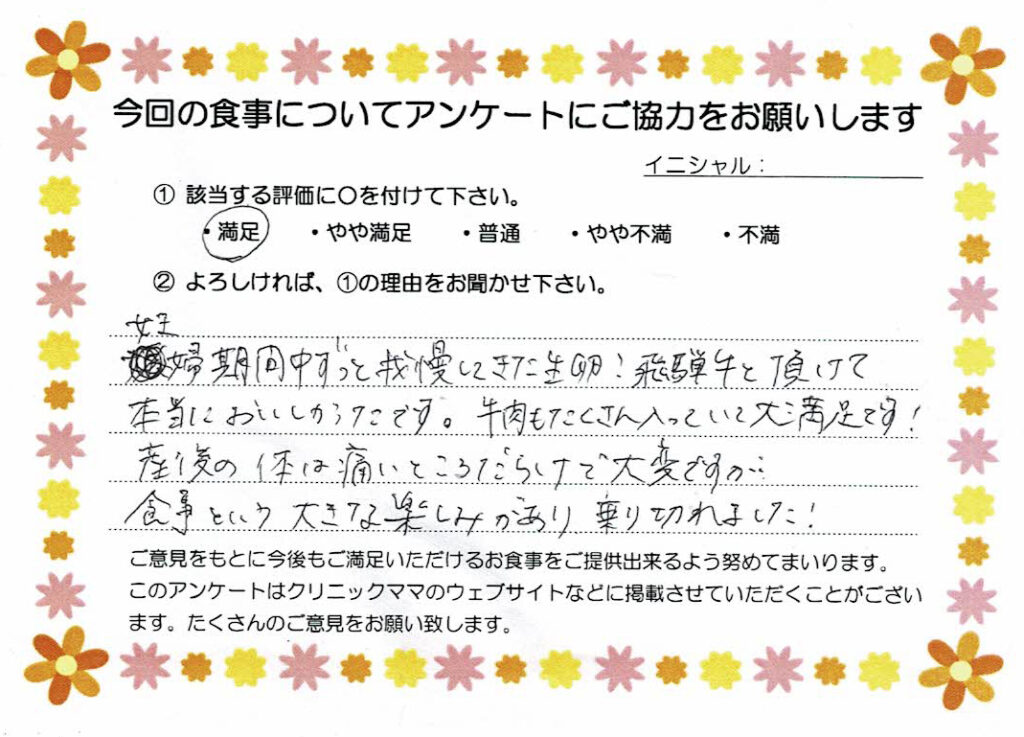 今回の食事についてアンケートにご協力をお願いします
イニシャル：
① 該当する評価に〇を付けて下さい。
・満足 ・やや満足 ・普通 ・やや不満 ・不満
② よろしければ、①の理由をお聞かせ下さい。
妊
婦期間中ずっと我慢してきた生卵！飛騨牛と頂けて
本当においしかったです。牛肉もたくさん入っていて大満足です！
産後の体は痛いところだらけで大変ですが…
食事という大きな楽しみがあり乗り切れました！
ご意見をもとに今後もご満足いただけるお食事をご提供出来るよう努めてまいります。
このアンケートはクリニックママのウェブサイトなどに掲載させていただくことがござい
ます。たくさんのご意見をお願い致します。